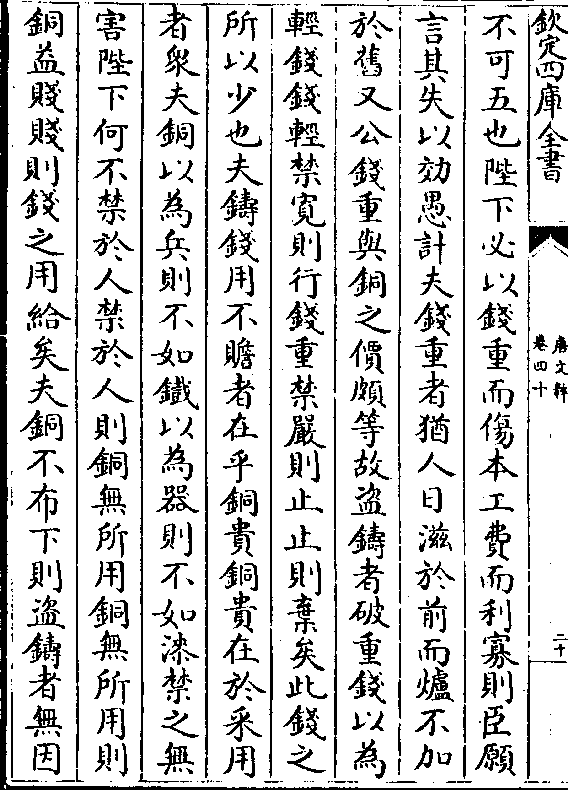 欽定四庫全書
唐文粹
卷四十
二十
不可五也陛下必以錢重而傷本工費而利寡則臣願
言其失以効愚計夫錢重者猶人日滋於前而爐不加
於舊又公錢重與銅之價頗等故盗鑄者破重錢以為
輕錢錢輕禁寛則行錢重禁嚴則止止則棄矣此錢之
所以少也夫鑄錢用不贍者在乎銅貴銅貴在於采用
者衆夫銅以為兵則不如鐵以為器則不如漆禁之無
害陛下何不禁於人禁於人則銅無所用銅無所用則
銅益賤賤則錢之用給矣夫銅不布下則盗鑄者無因